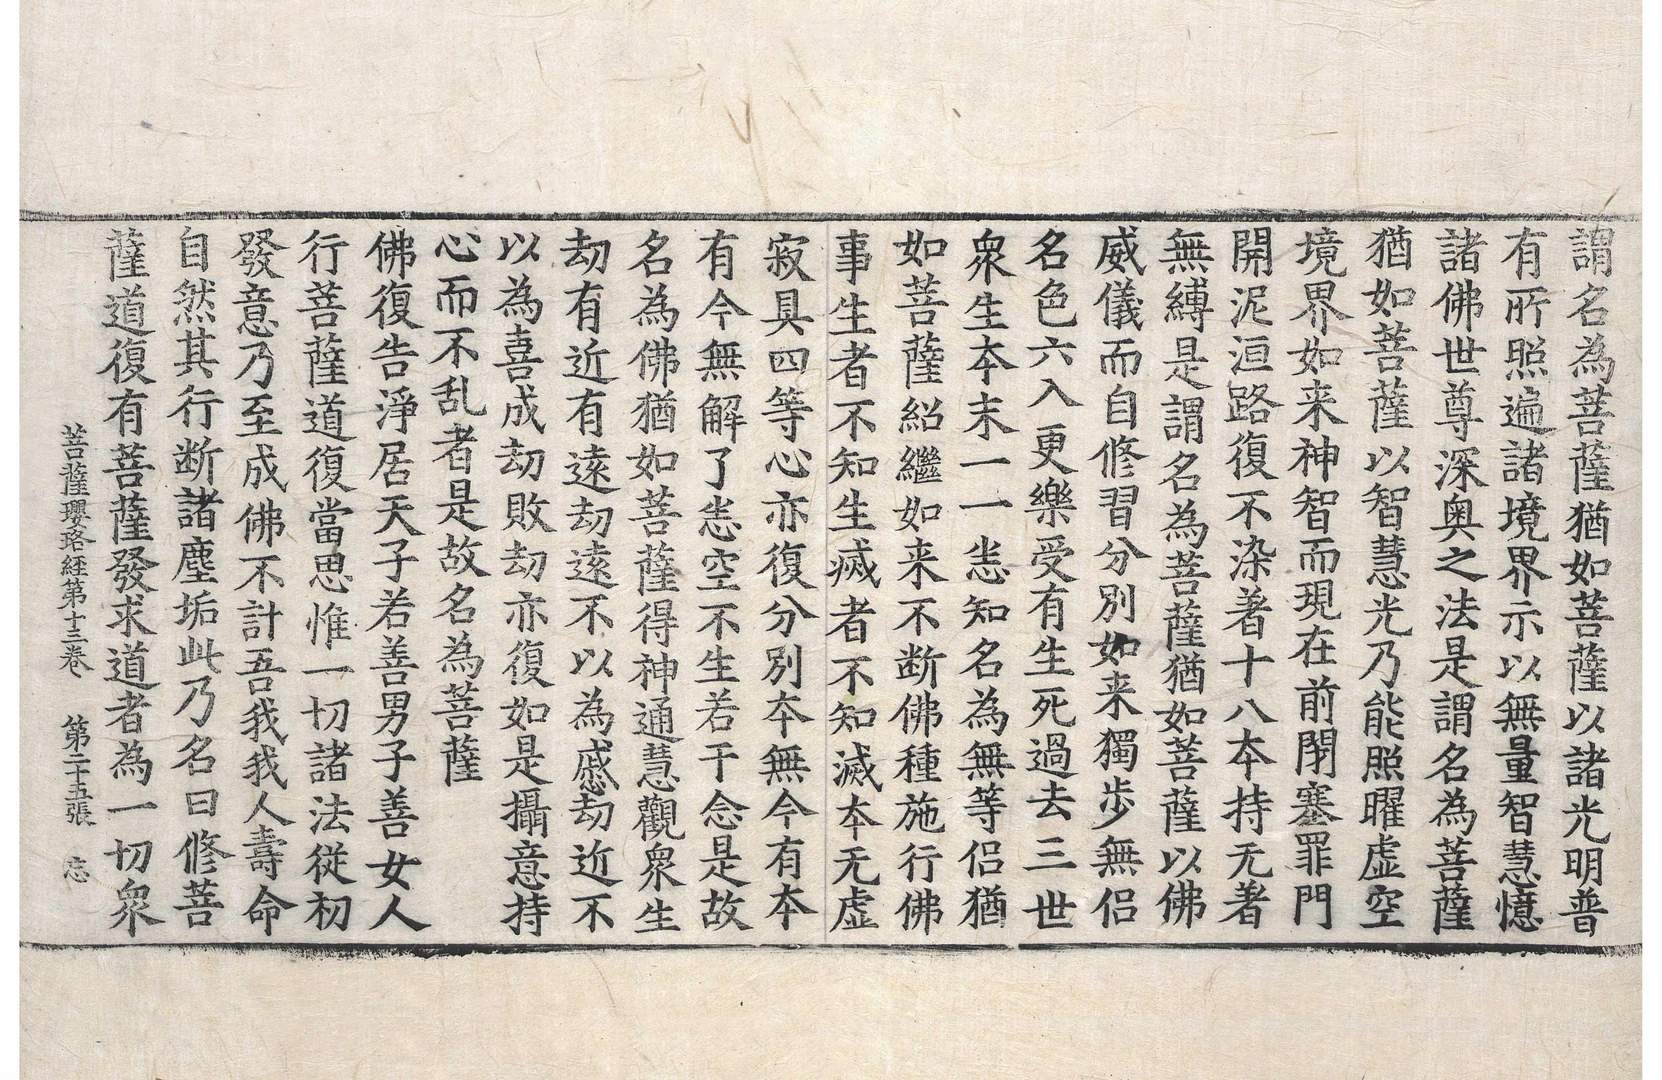 謂名為菩薩猶如菩薩以諸光明普
有所照遍諸境界示以無量智慧憶
諸佛世尊深奧之法是謂名為菩薩
猶如菩薩以智慧光乃能照曜虛空
境界如来神智而現在前閇塞罪門
開泥洹路復不染著十八本持无著
無縛是謂名為菩薩猶如菩薩以佛
威儀而自修習分別如来獨步無侣
名色六入更樂受有生死過去三世
衆生夲末一一悉知名為無等侣猶
如菩薩紹繼如来不断佛種施行佛
事生者不知生滅者不知滅夲无虛
寂具四等心亦復分別夲無今有夲
有今無解了悉空不生若干念是故
名為佛猶如菩薩得神通慧觀衆生
劫有近有遠劫遠不以為慼劫近不
以為喜成劫敗劫亦復如是攝意持
心而不乱者是故名為菩薩
佛復告淨居天子若善男子善女人
行菩薩道復當思惟一切諸法從初
發意乃至成佛不計吾我我人壽命
自然其行断諸塵垢此乃名曰修菩
薩道復有菩薩發求道者為一切衆
菩薩瓔珞経第十三卷 第二十五張 忘